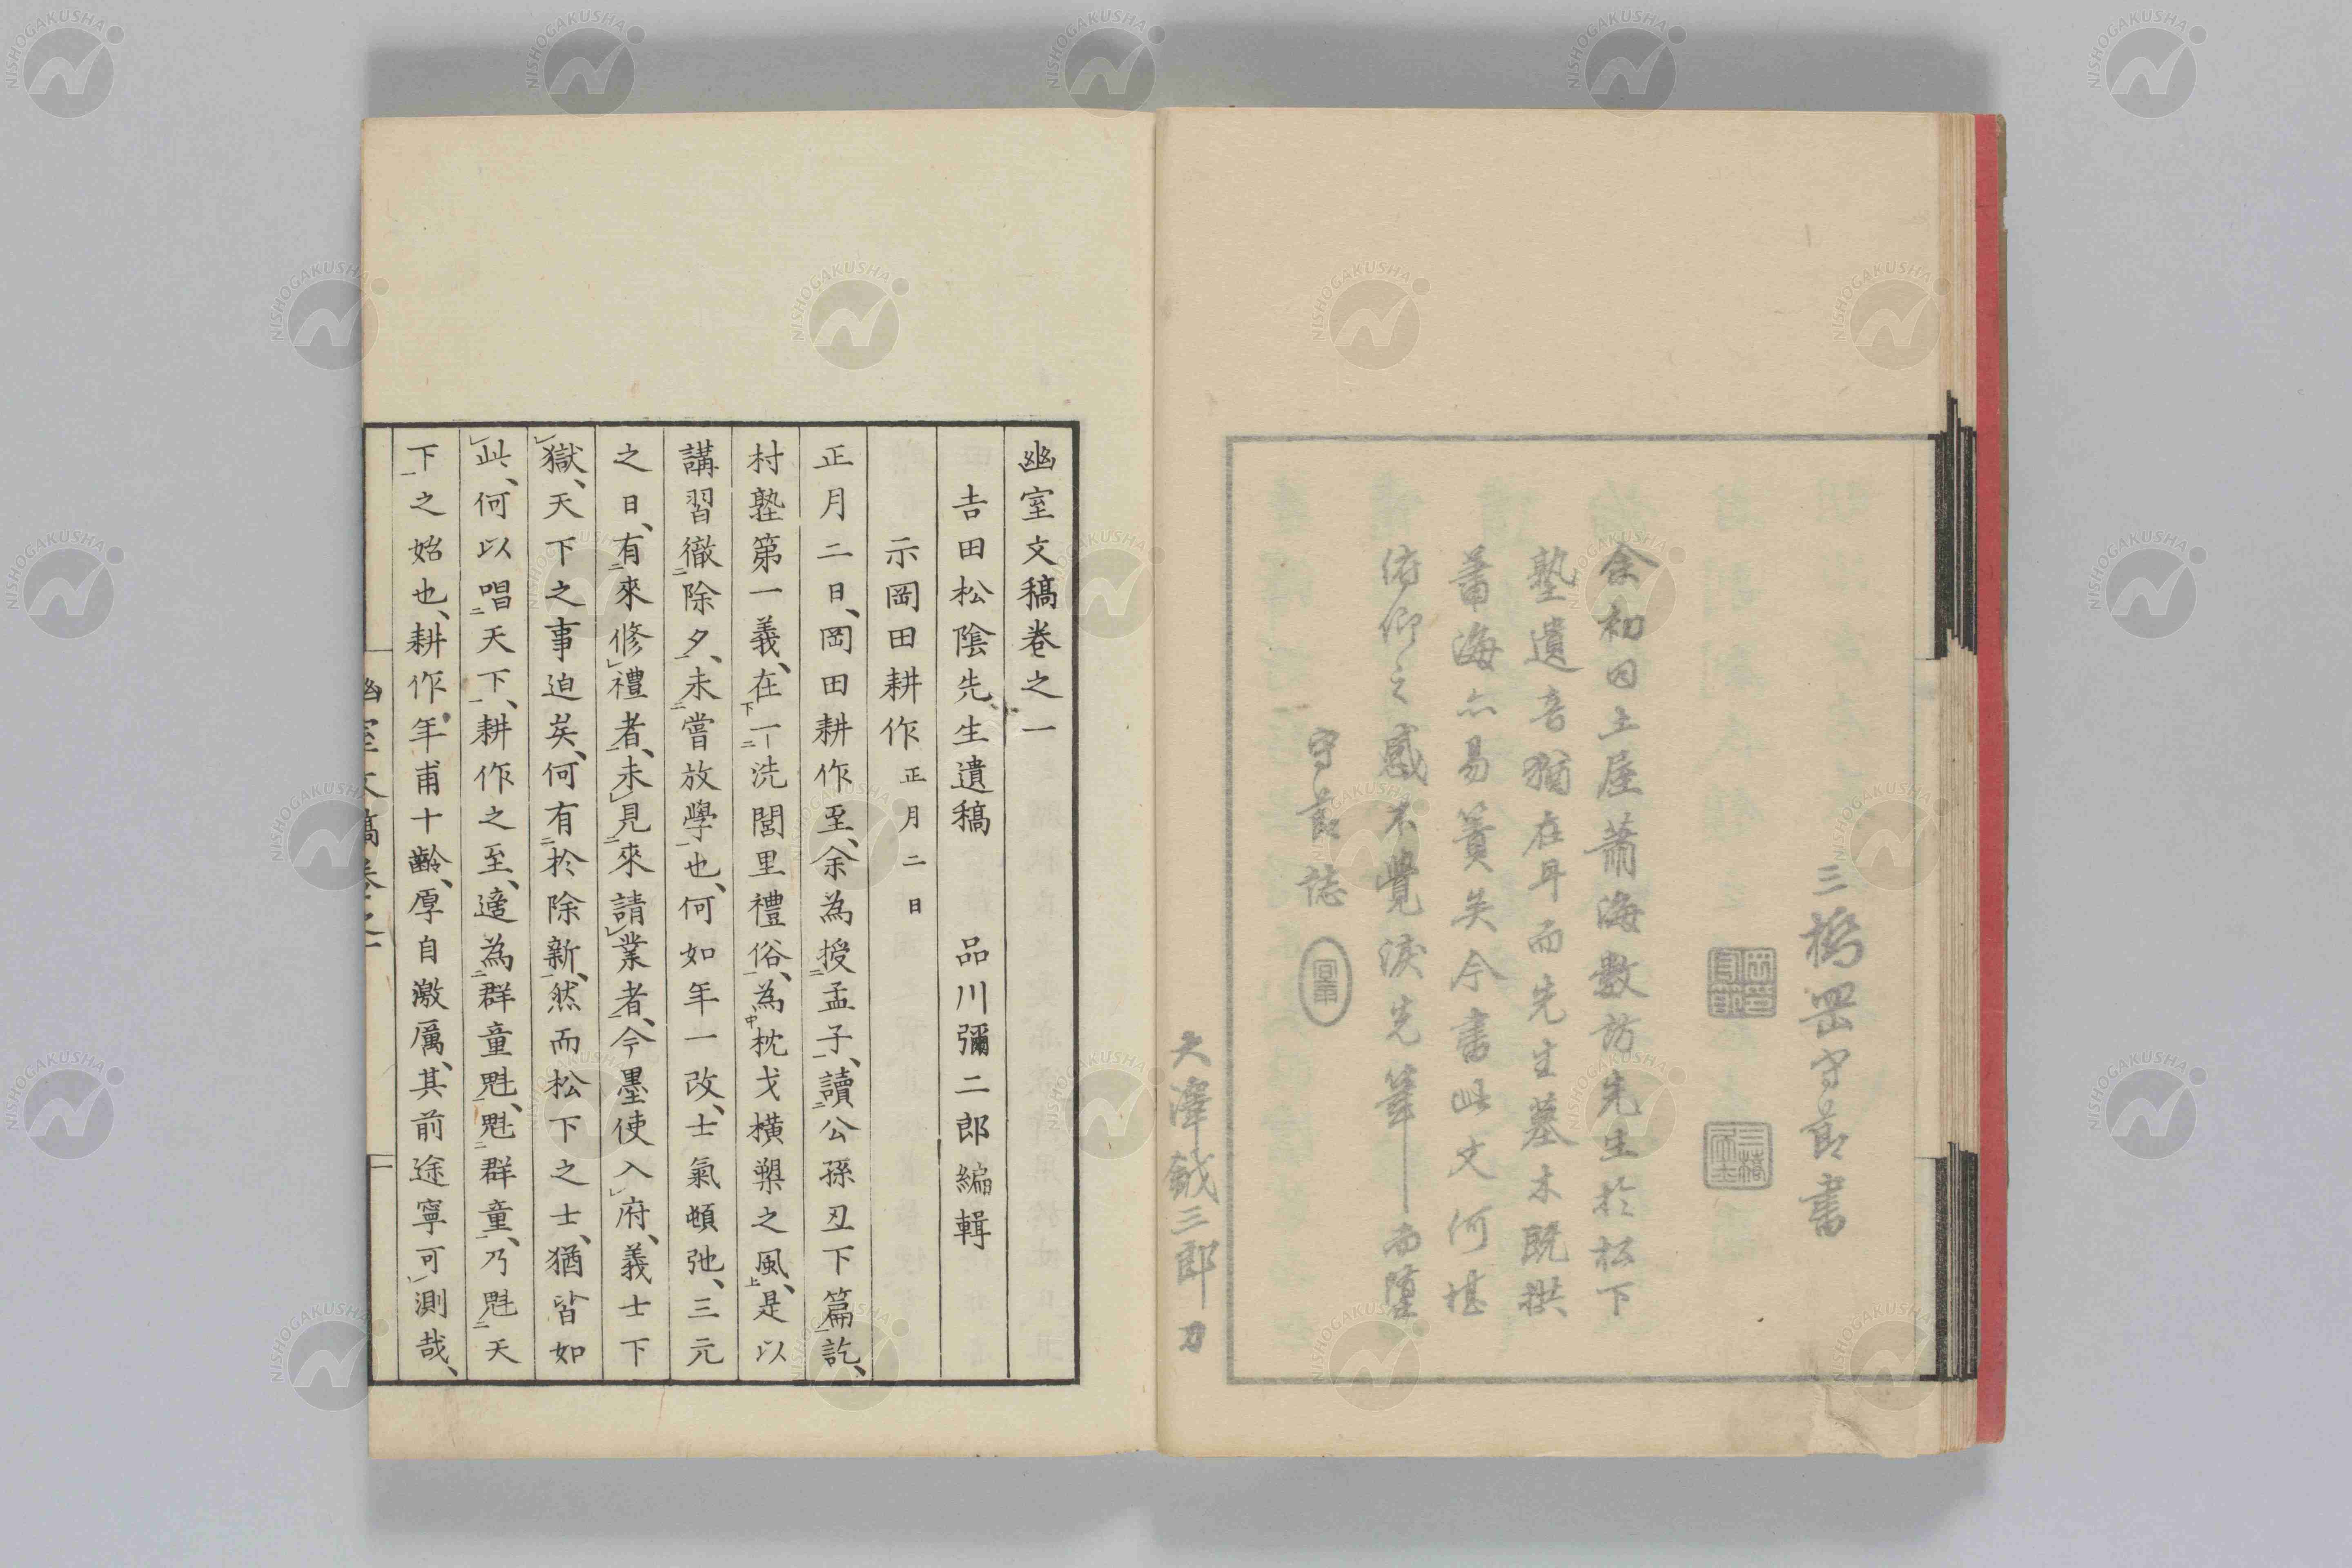 三橋罡守節書
余初因土屋蕭海數訪先生於松下
塾遺音猶在耳而先生墓木既拱
蕭海亦易簀矣今書此文何堪
俯仰之感不覺淚先筆而墮
守節誌
大澤鉞三郎刀
幽室文稿卷之一
吉田松陰先生遺稿　品川彌二郎編輯
示岡田耕作 正月二日
正月二日、岡田耕作至、余為授二孟子一、讀二公孫丑下篇一訖、
村塾第一義、在下一二洗閭里禮俗一、為中枕戈橫槊之風上、是以
講習徹二除夕一、未二嘗放學一也、何如年一改、士氣頓弛、三元
之日、有二來修レ禮者一、未レ見二來請レ業者一、今墨使入レ府、義士下レ
獄、天下之事迫矣、何有二於除新一、然而松下之士、猶皆如レ
此、何以唱二天下一、耕作之至、適為二群童魁一、魁二群童一、乃魁二天
下一之始也、耕作年甫十齡、厚自激厲、其前途寧可レ測哉、
幽室文稿卷之一
一
NISHOGAKUSHA